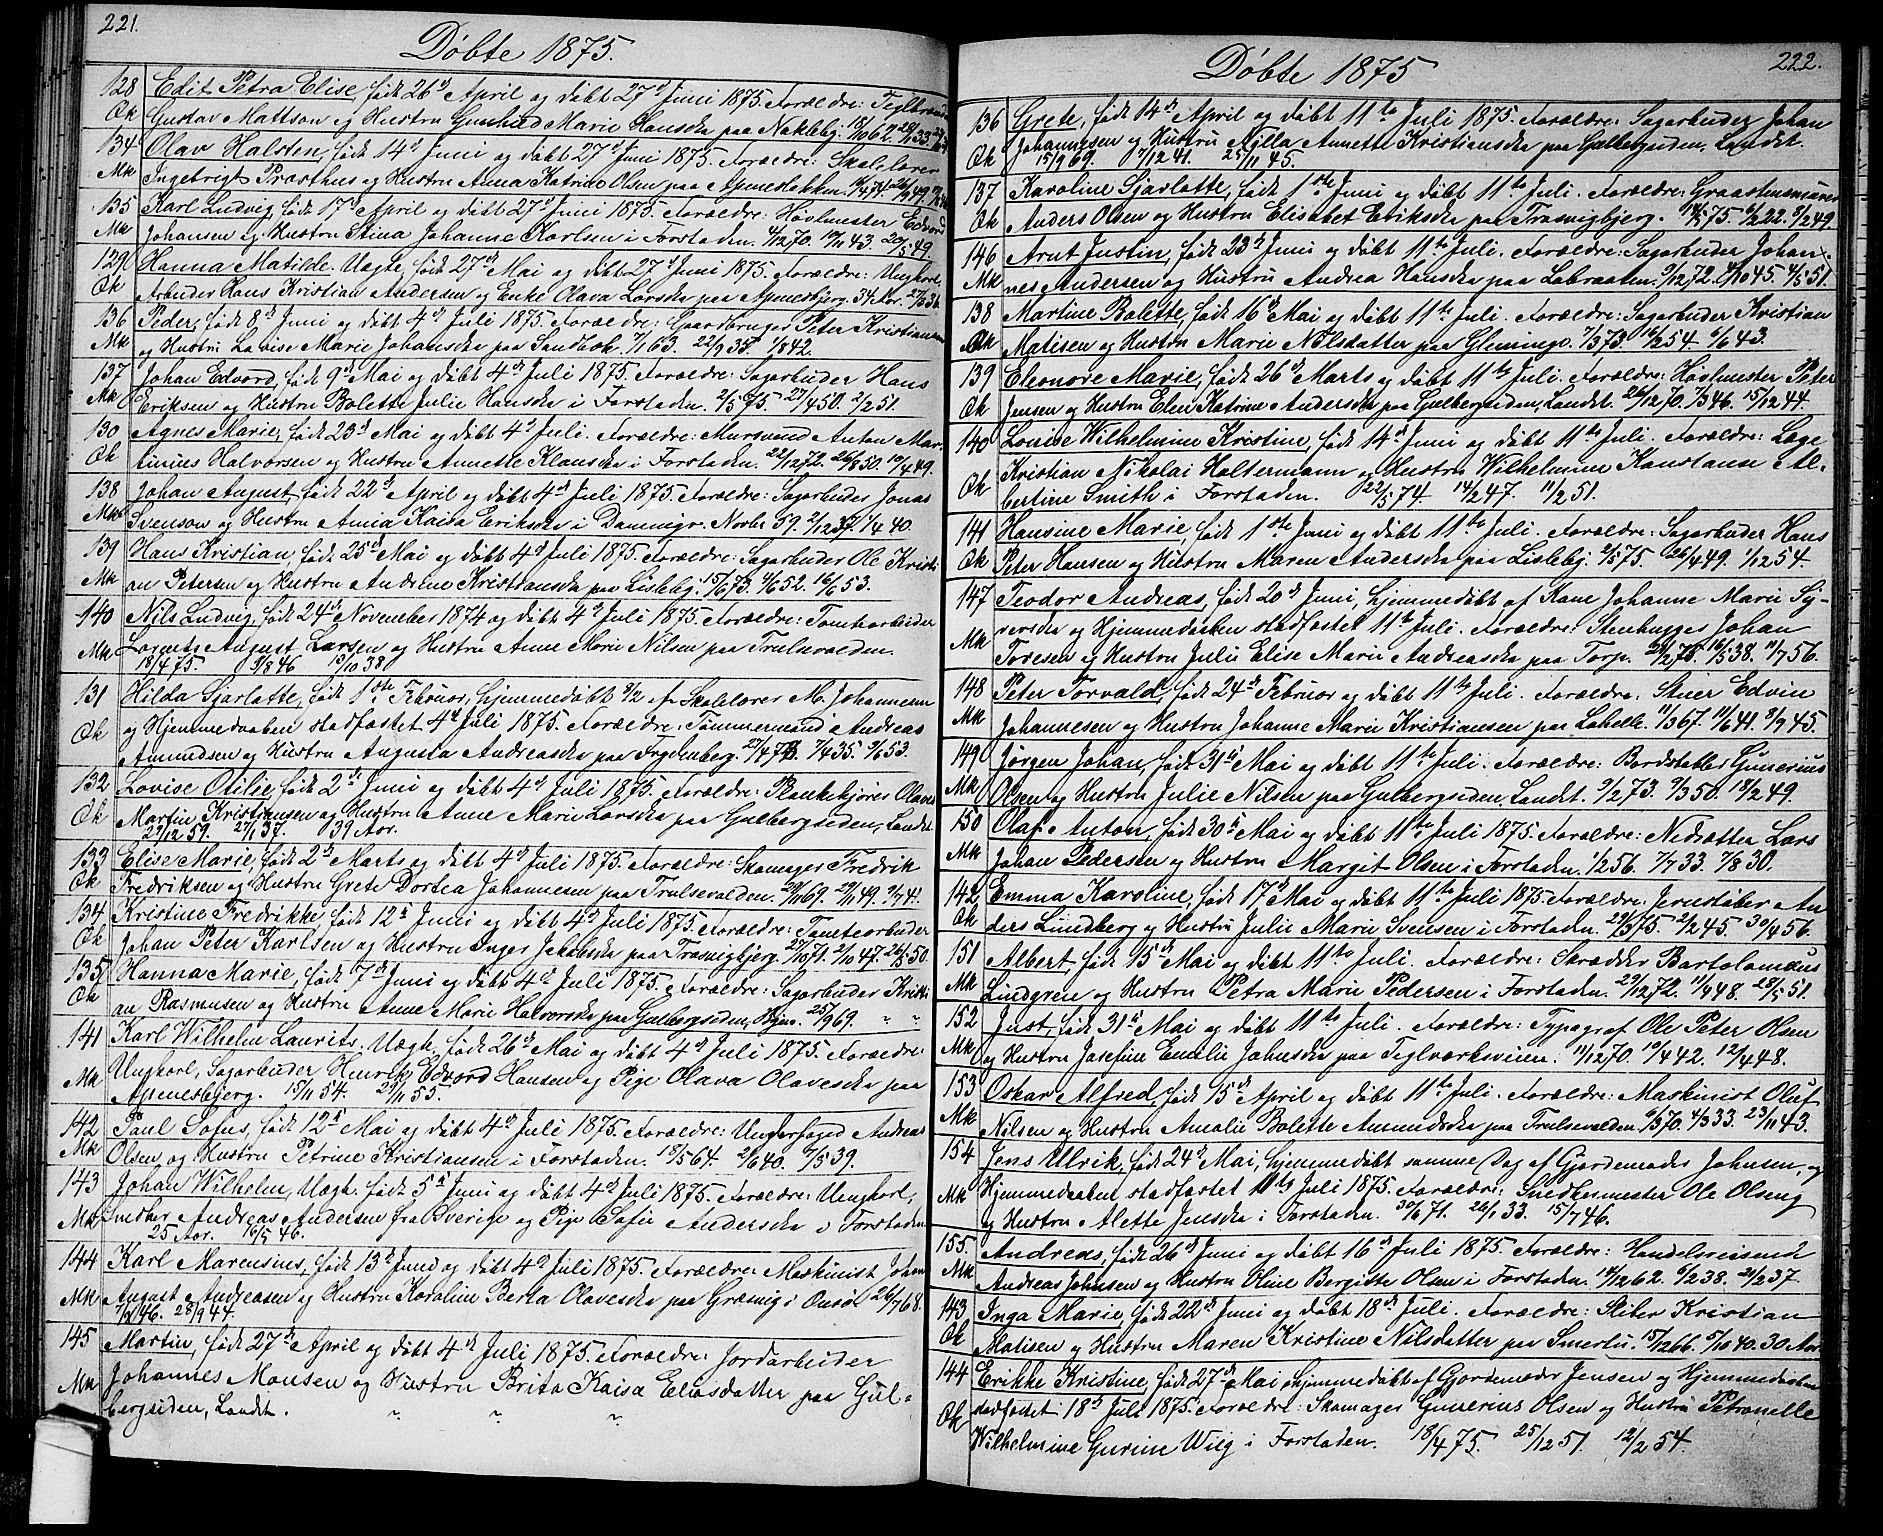 221.
Døbte 1875.
128 Edit Petra Elise, født 26de April og døbt 27de Juni 1875. Forældre: Teglbrænder
Ok Gustav Mattson og Hustru Gunhild Marie Hansda paa Nabbelbg.
134 Olav Halsten, født 14de Juni og døbt 27de Juni 1875. Forældre: Skolelærer
Mk Ingebrigt Præsthus og Hustru Anna Katrine Olsen paa Apenesløkken.
135 Karl Ludvig, født 17de April og døbt 27de Juni 1875. Forældre: Høvlmester Edvard
Mk Johansen og Hustru Stina Johanne Karlsen i Forstaden. 4/12 70. 19/11 43. 20/5 49.
129 Hanna Matilde. Uægte, født 27de Mai og døbt 27de Juni 1875. Forældre: Ungkarl,
Ok Arbeider Hans Kristian Andersen og Enke Olava Larsda paa Apenesbjerg. 34 Aar.
136 Peder, født 8de Juni og døbt 4de Juli 1875. Forældre: Gaardbruger Peter Kristiansen
Mk og Hustru Lovise Marie Johansda paa Sandbæk. 7/1 63. 22/9 35. 1/8 42.
137 Johan Edvard, født 9de Mai og døbt 4de Juli 1875. Forældre: Sagarbeider Hans
Mk Eriksen og Hustru Bolette Julie Hansda i Forstaden. 2/5 75. 22/4 50. 2/2 51.
130 Agnes Marie, født 23de Mai og døbt 4de Juli. Forældre: Mursvend Anton Mar-
Ok tinius Halvorsen og Hustru Annette Klausda i Forstaden. 22/12 72. 26/8 50. 10/4 49.
138 Johan August, født 22de April og døbt 4de Juli 1875. Forældre: Sagarbeider Jonas
Mk Svenson og Hustru Anna Kaisa Eriksda i Damnigr. Novbr 59. 2/12 37. 1/4 40.
139 Hans Kristian, født 25de Mai og døbt 4de Juli 1875. Forældre: Sagarbeider Ole Kristi-
Mk an Petersen og Hustru Andrine Kristiansda paa Lisleby. 15/6 73. 4/6 52. 16/6 53.
140 Nils Ludvig, født 24de November 1874 og døbt 4de Juli 1875. Forældre: Tomtearbeider
Mk Lorents August Larsen og Hustru Anne Marie Nilsen paa Trulsevolden.
18/4 75. 3/8 46 15/10 38.
131 Hilda Sjarlotte, født 1ste Februar, hjemmedøbt 9/2 af Skolelærer M. Johannesen
Ok og Hjemmedaaben stadfæstet 4de Juli 1875. Forældre: Tømmermand Andreas
Amundsen og Hustru Augusta Andreasda paa Ingelsberg. 27/4 73. 7/4 35. 9/6 53.
132 Lovise Otilie, født 2de Juni og døbt 4de Juli 1875. Forældre: Plankekjører Olaves
Ok Martin Kristiansen og Hustru Anne Marie Larsda paa Gulbergsiden, Landet.
29/12 59. 27/1 37. 39 Aar.
133 Elise Marie, født 2de Marts og døbt 4de Juli 1875. Forældre: Skomager Fredrik
Ok Fredriksen og Hustru Grete Dortea Johannesen paa Trulsevolden. 28/11 69. 29/11 49. 9/7 41.
134 Kristine Fredrikke født 12te Juni og døbt 4de Juli 1875. Forældre: Tomtearbeider
Ok Johan Peter Karlsen og Hustru Inger Jakobsda paa Trosvigbjerg. 27/10 71. 2/10 47. 26/5 50.
135 Hanna Marie, født 7de Juni og døbt 4de Juli 1875. Forældre: Sagarbeider Kristi-
Ok an Rasmusen og Hustru Anne Marie Halvorsda paa Gulbergsiden, 25/9 69. " "
141 Karl Wilhelm Laurits, Uægte, født 26de Mai og døbt 4de Juli 1875. Forældre:
Mk Ungkarl, Sagarbeider Henrik Edvard Hansen og Pige Olava Olavesda paa
Apenesbjerg. 15/11 54. 25/11 53.
142 Paul Sofus, født 12te Mai og døbt 4de Juli 1875. Forældre: Underfoged Andreas
Mk Olsen og Hustru Petrine Kristiansen i Forstaden. 18/5 64. 2/6 40. 9/5 39.
143 Johan Wilhelm, Uægte, født 5te Juni og døbt 4de Juli 1875. Forældre: Ungkarl,
Mk Snedker Andreas Andersen fra Sverige og Pige Sofie Andersda i Forstaden
25 Aar. 16/5 46.
144 Karl Marensius, født 13de Juni og døbt 4de Juli 1875. Forældre: Maskinist Johan
Mk August Andreasen og Hustru Karoline Berta Olavesda paa Græsvig i Onsø. 26/7 68.
7/2 46. 28/9 44.
145 Martin, født 27de April og døbt 4de Juli 1875. Forældre: Jordarbeider
Mk Johannes Monsen og Hustru Brita Kaisa Eliasdatter paa Gul-
bergsiden, Landet. " " "
222.
Døbte 1875
136 Grete, født 14de April og døbt 11te Juli 1875. Forældre: Sagarbeider Johan
Ok Johannesen og Hustru Milla Annette Kristiansda paa Gulbergsiden, Landet.
15/9 69. 7/12 41. 25/11 45.
137 Karoline Sjarlotte, født 1ste Juni og døbt 11te Juli. Forældre: Graastensminør
Ok Anders Olsen og Hustru Elisabet Eriksda paa Trosvigbjerg. 14/5 75. 6/2 22. 9/2 49.
146 Arnt Justin, født 23de Juni og døbt 11te Juli. Forældre: Sagarbeider Johan-
Mk nes Andersen og Hustru Andrea Hansda paa Labraaten. 9/12 72. 4/10 45. 4/5 51.
138 Martine Bolette, født 16de Mai og døbt 11te Juli. Forældre: Sagarbeider Kristian
Ok Matisen og Hustru Marie Nilsdatter paa Glemminge. 7/3 73. 16/2 54. 6/6 43.
139 Eleonore Marie, født 26de Marts og døbt 11te Juli. Forældre: Høvlmester Peter
Ok Jensen og Hustru Elen Katrine Andersda paa Gulbergsiden, Landet. 26/12 70. 1/3 46. 15/12 44.
140 Lovise Wilhelmine Kristine, født 14de Juni og døbt 11te Juli. Forældre: Læge
Ok Kristian Nikolai Haltermann og Hustru Wilhelmine Konstanse Al-
bertine Smith i Forstaden. 22/5 74. 14/2 47. 11/2 51.
141 Hansine Marie, født 1ste Juni og døbt 11te Juli. Forældre: Sagarbeider Hans
Ok Peter Hansen og Hustru Maren Andersda paa Lisleby. 2/5 75. 26/4 49. 1/12 54.
147 Teodor Andreas, født 20de Juni, hjemmedøbt af Kone Johanne Marie Sy-
Mk versda og Hjemmedaaben stadfæstet 11te Juli. Forældre: Stenhugger Johan
Toresen og Hustru Julie Elise Marie Andreasda paa Torp. 20/2 75. 10/5 38. 11/7 56.
148 Peter Torvald, født 24de Februar og døbt 11te Juli. Forældre: Stuer Edvin
Mk Johannesen og Hustru Johanne Marie Kristiansen paa Lahelle. 11/3 67. 11/6 41. 8/9 45.
149 Jørgen Johan, født 31te Mai og døbt 11te Juli. Forældre: Bordstabler Gunerius
Mk Olsen og Hustru Julie Nilsen paa Gulbergsiden, Landet. 9/2 73. 9/3 50. 18/2 49.
150 Olaf Anton, født 30te Mai og døbt 11te Juli 1875. Forældre: Nedsætter Lars
Mk Johan Pedersen og Hustru Margit Olsen i Forstaden. 1/2 56. 7/7 33. 7/8 30.
142 Emma Karoline, født 17de Mai og døbt 11te Juli 1875. Forældre: Jernstøber An-
Ok ders Lundberg og Hustru Julie Marie Svensen i Forstaden. 29/3 75. 2/2 45. 30/4 56.
151 Albert, født 15de Mai og døbt 11te Juli. Forældre: Skrædder Bartolomæus
Mk Lindgren og Hustru Petra Marie Pedersen i Forstaden. 29/12 72. 11/4 48. 28/5 51.
152 Just, født 31te Mai og døbt 11te Juli. Forældre: Typograf Ole Peter Olsen
Mk og Hustru Josefine Emilie Johnsda paa Teglværksveien. 11/12 70. 19/4 42. 12/4 48.
153 Oskar Alfred, født 15de April og døbt 11te Juli. Forældre: Maskinist Oluf
Mk Nilsen og Hustru Amalie Bolette Amundsda paa Trulsevolden. 6/3 70. 4/3 33. 23/11 43.
154 Jens Ulrik, født 24de Mai, hjemmedøbt samme Dag af Gjordemoder Johnsen, og
Mk Hjemmedaaben stadfæstet 11te Juli 1875. Forældre: Snedkermester Ole Olsen
og Hustru Alette Jensda i Forstaden. 30/6 71. 26/1 33. 15/7 46.
155. Andreas, født 26de Juni og døbt 16de Juli 1875. Forældre: Handelsreisende
Mk Andreas Johnsen og Hustru Oline Bergitte Olsen i Forstaden. 14/12 62. 6/2 38. 21/2 37.
143 Inga Marie, født 22de Juni og døbt 18de Juli. Forældre: Sliber Kristian
Ok Matisen og Hustru Maren Kristine Nilsdatter paa Smertu. 15/12 66. 5/10 40. 30 Aar
144 Erikke Kristine, født 27de Mai, hjemmedøbt af Gjordemoder Jensen og Hjemmedaaben
Ok stadfæstet 18de Juli 1875. Forældre: Skomager Gunerius Olsen og Hustru Petronelle
Wilhelmine Gurine Wiig i Forstaden. 18/4 75. 25/12 51. 12/2 54.